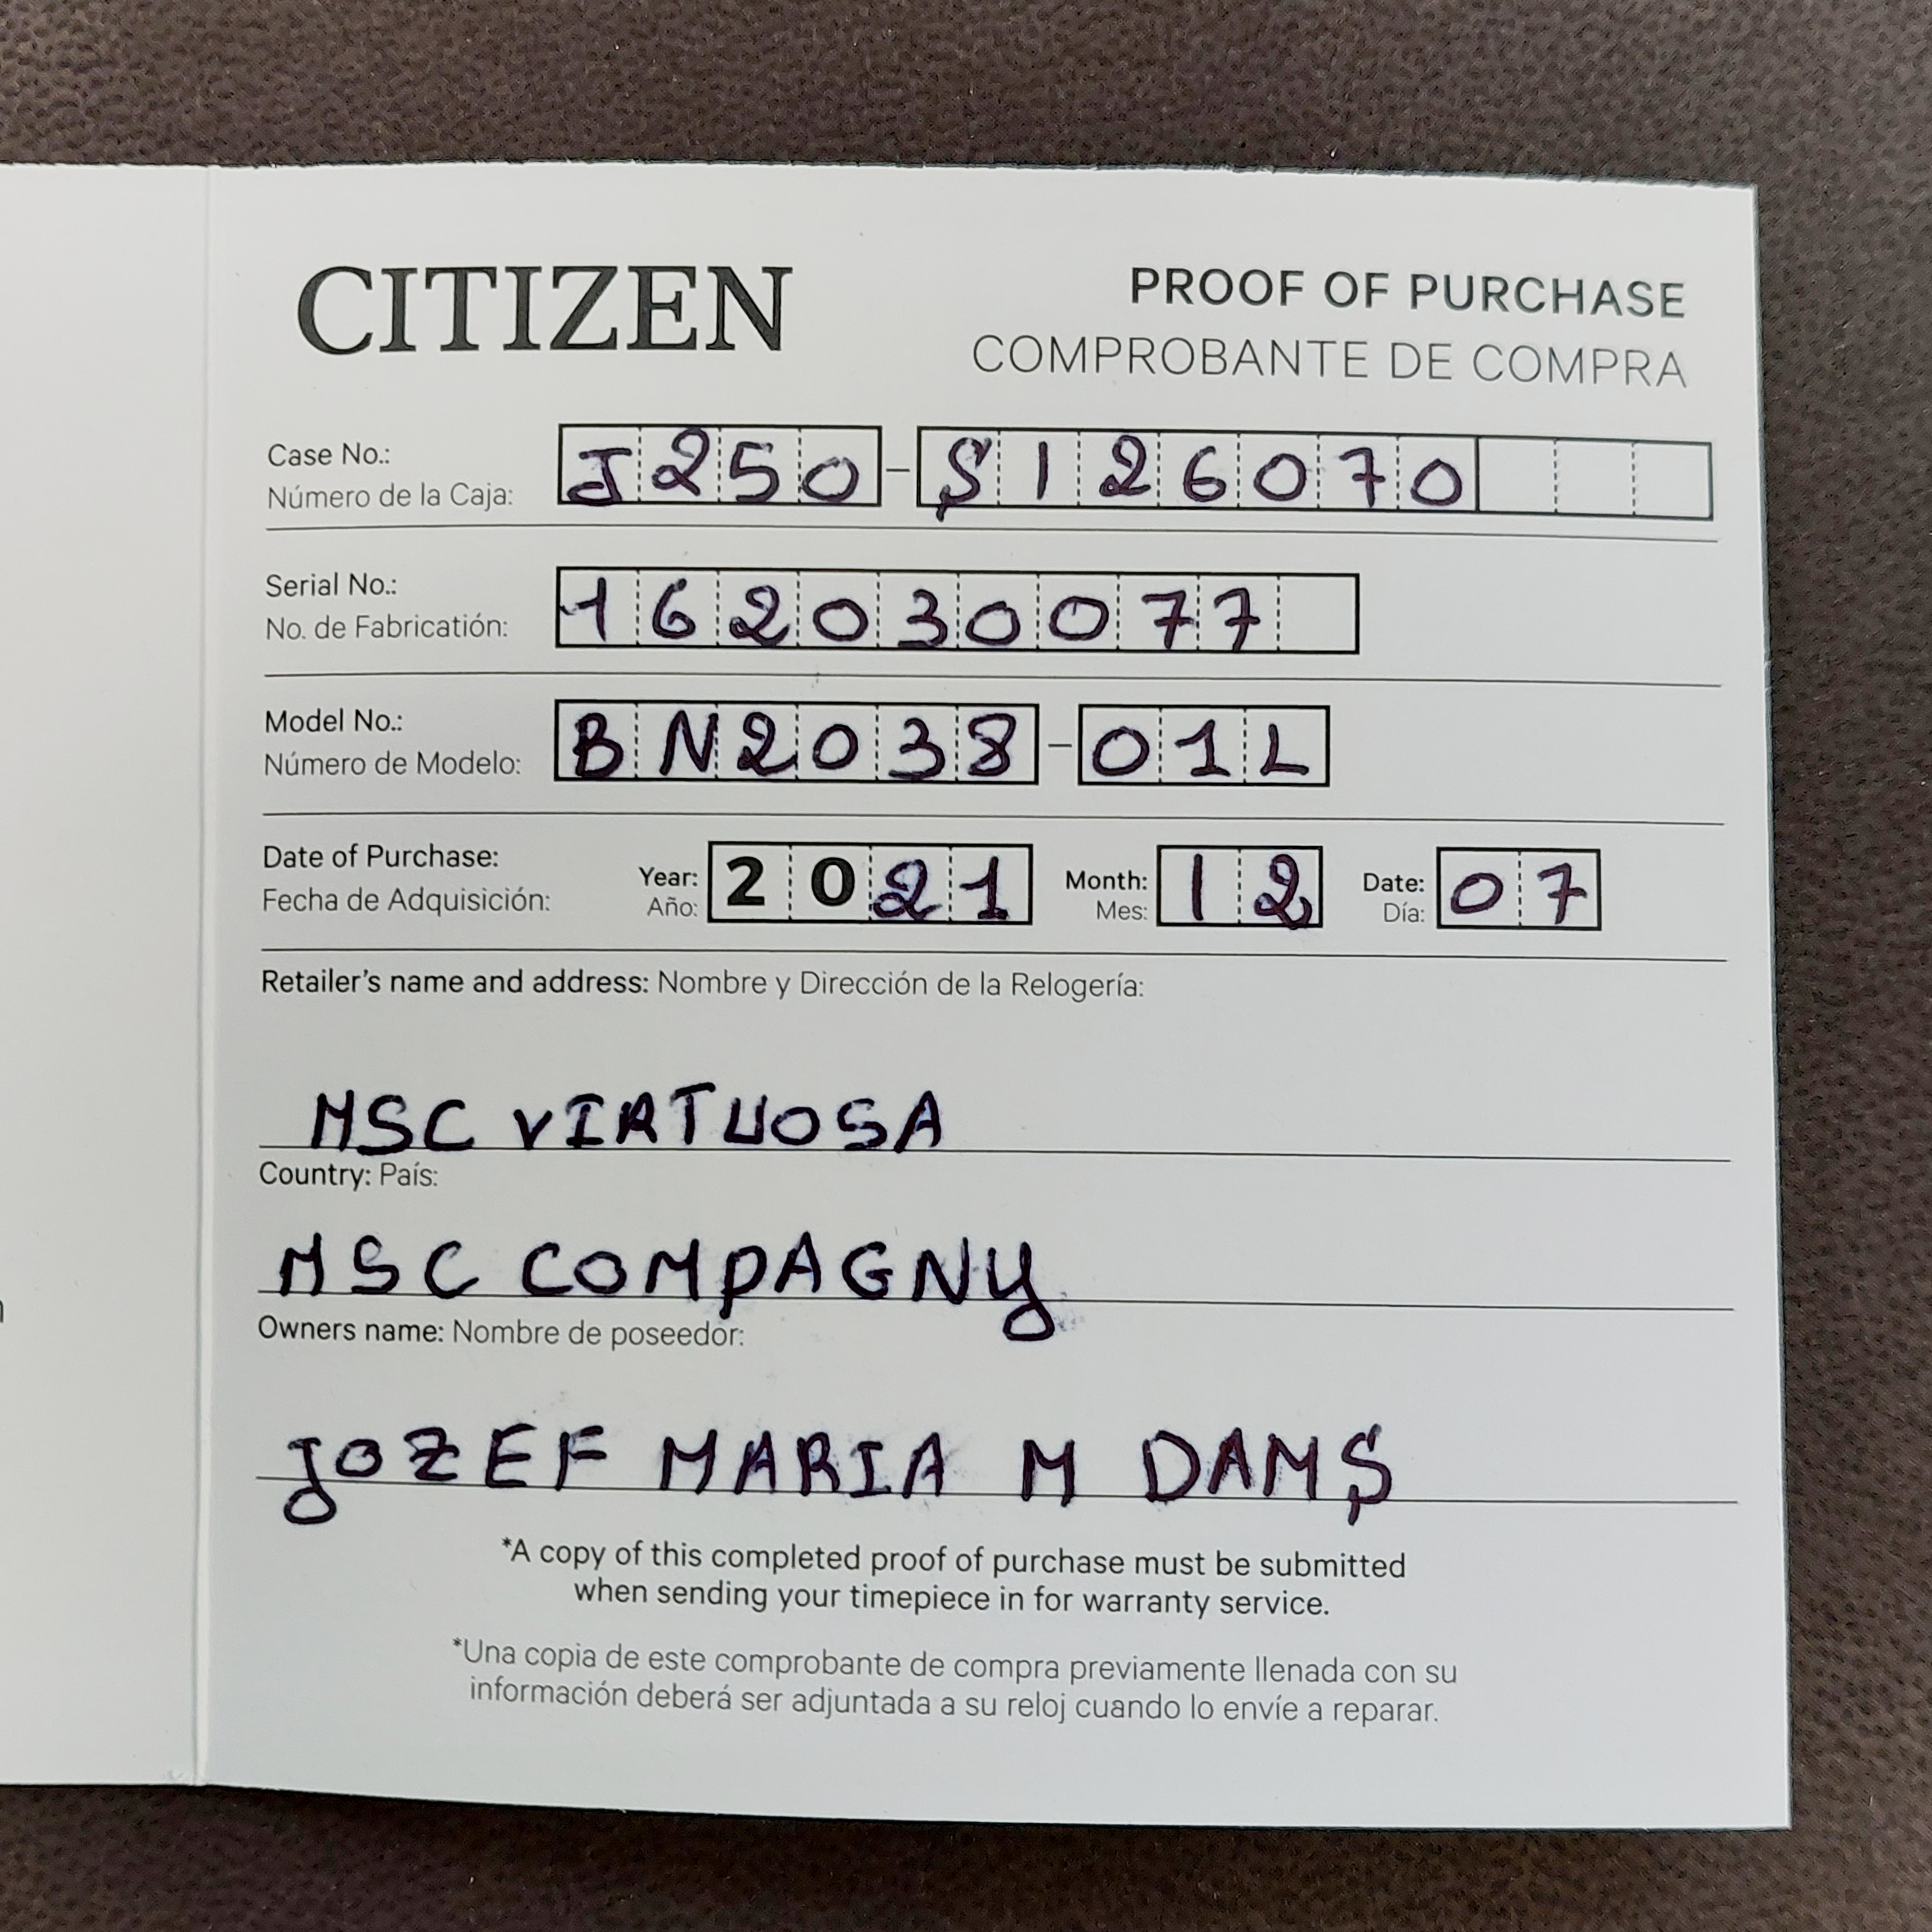 CITIZEN
PROOF OF PURCHASE
COMPROBANTE DE COMPRA
Case No.: J250-S126070
Número de la Caja:
Serial No.: 162030077
No. de Fabricatión:
Model No.: BN2038-01L
Número de Modelo:
Date of Purchase: Year: 2021 Month: 12 Date: 07
Fecha de Adquisición: Año: Mes: Día:
Retailer's name and address: Nombre y Dirección de la Relogería:
MSC VIRTUOSA
Country: País:
MSC COMPAGNY
Owners name: Nombre de poseedor:
JOZEF MARIA M DAMS
*A copy of this completed proof of purchase must be submitted
when sending your timepiece in for warranty service.
*Una copia de este comprobante de compra previamente llenada con su
información deberá ser adjuntada a su reloj cuando lo envíe a reparar.